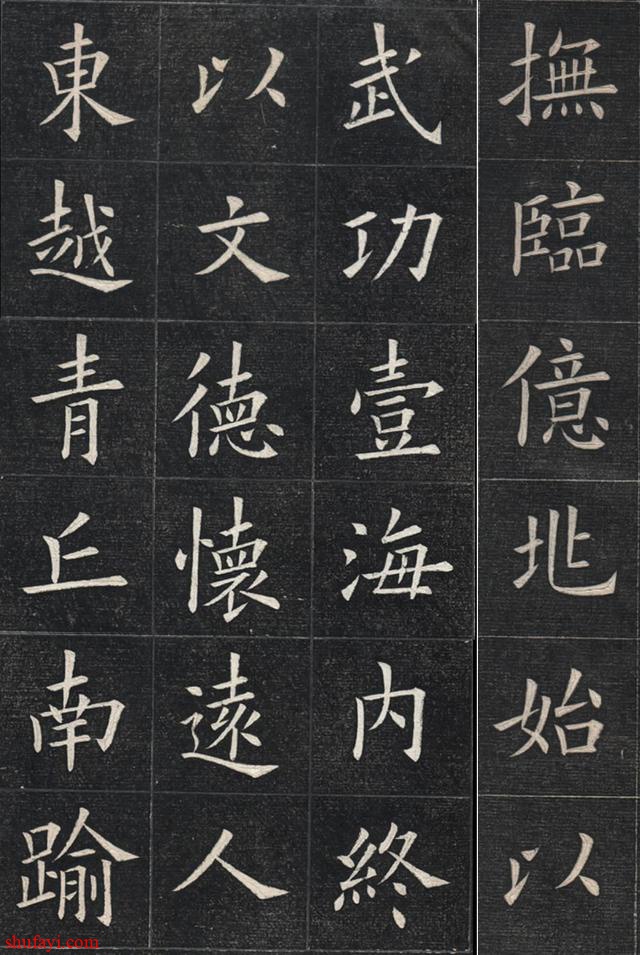 撫臨億兆始以
武功壹海内終
以文德懷遠人
東越青丘南踰
shufayi.com